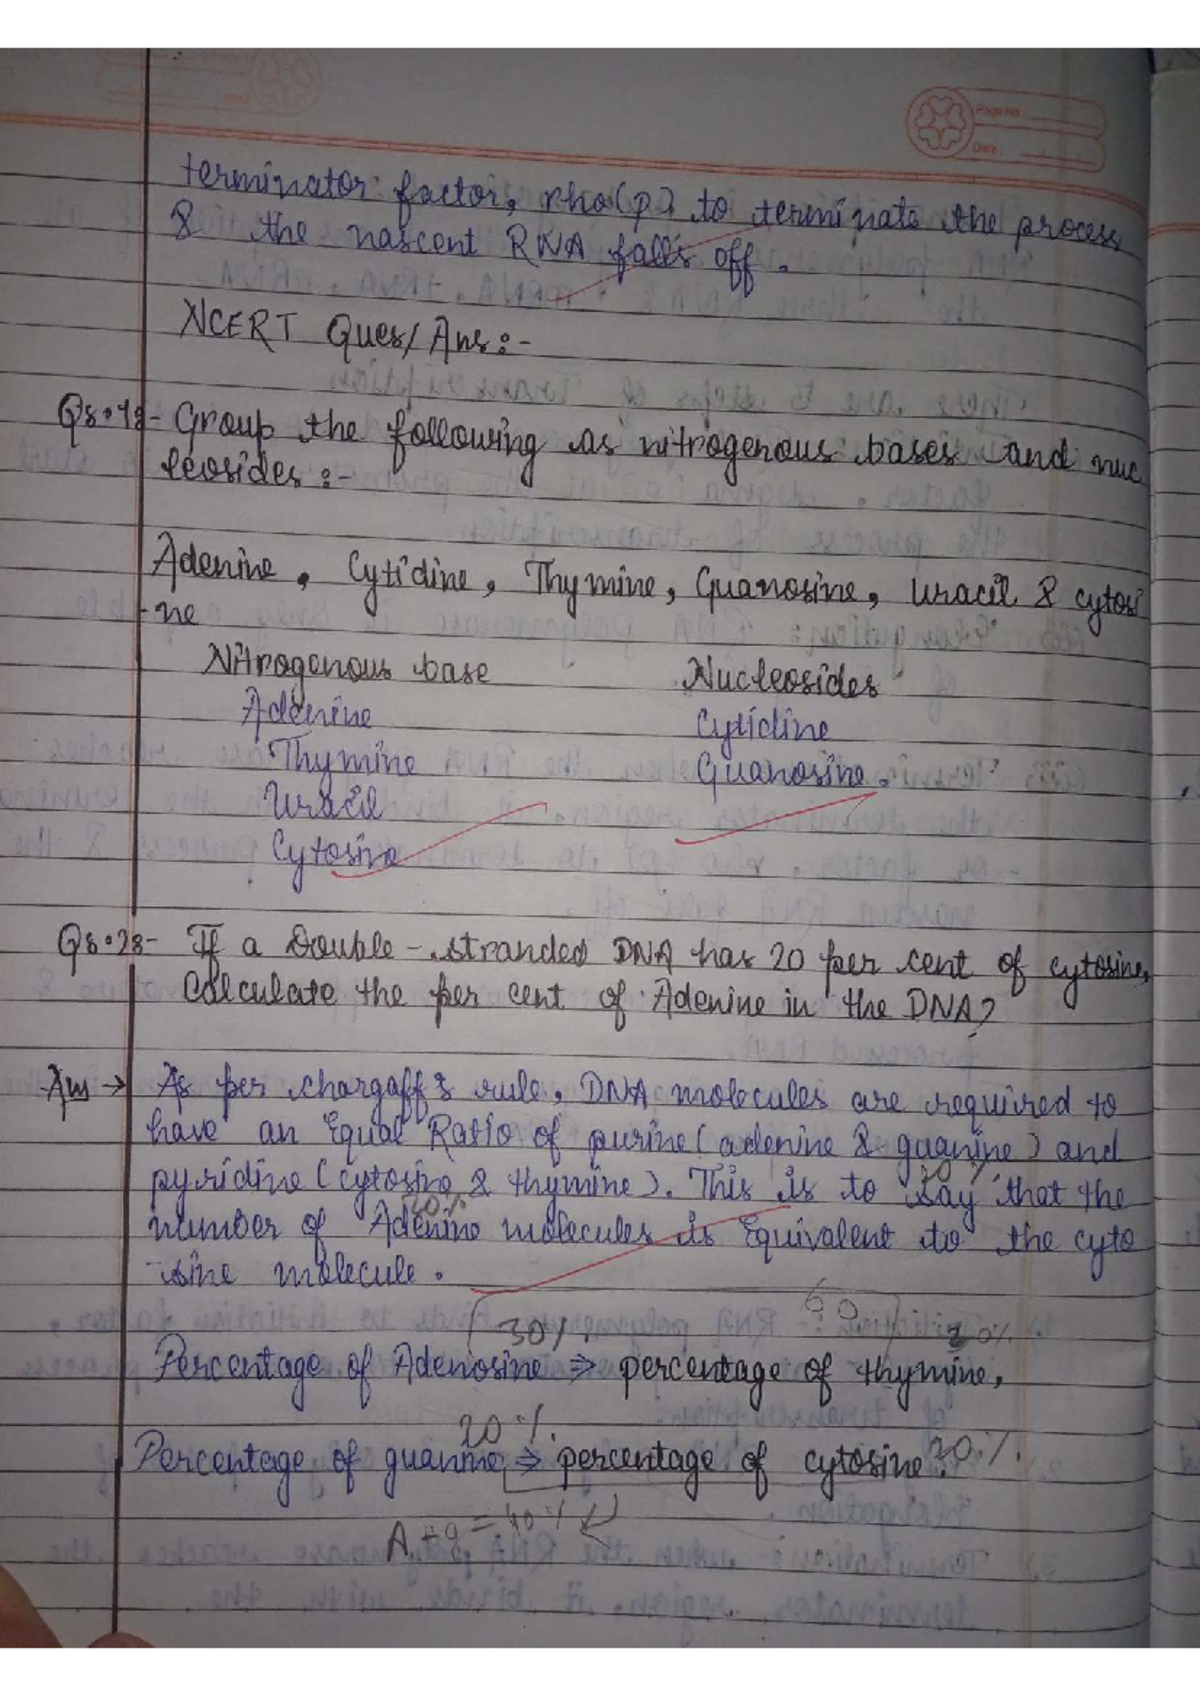 Page No.
Date
terminator factor, rho(p) to terminate the process
& the nascent RNA falls off.
NCERT Ques/Ans:-
Group the following as nitrogenous bases and nuc
leosides:-
Adenine, Cytidine, Thymine, Guanosine, Uracil & cytosi
-ne
Nitrogenous base Nucleosides
Adenine Cytidine
Thymine Guanosine.
Uracil
Cytosine
If a Double-stranded DNA has 20 per cent of cytosine,
Calculate the per cent of Adenine in the DNA?
Ans → As per chargaff's rule, DNA molecules are required to
have an Equal Ratio of purine (adenine & guanine) and
pyridine (cytosine & thymine). This is to say that the
20%
number of Adenine molecules is Equivalent to the cyto
-sine molecule.
60
30%.
Percentage of Adenosine ⇒ percentage of thymine,
20%.
Percentage of guanine ⇒ percentage of cytosine. 20%.
A+g = 40%